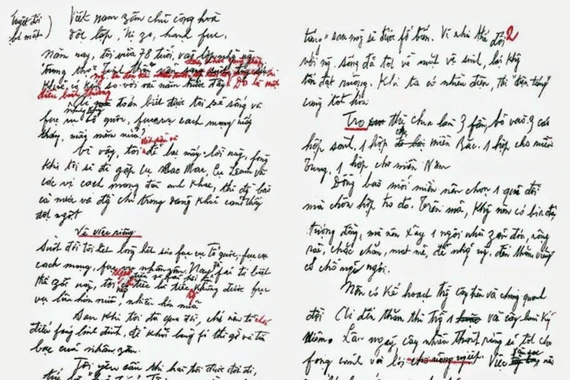 Tuyệt đối
bí mật)
Việt nam zân chủ cộng hoà
độc lập, tự zo, hạnh fúc.
Năm nay, tôi vừa 78 tuổi, vào lớp những
"trung thọ"
khoẻ, so với vài năm trước đây
điều bình thường
đoán biết được tôi sẽ sống và
fục vụ tổ quốc, fục vụ cách mạng mấy
tháng, mấy năm nữa?
Vì vậy, tôi để lại mấy lời này, fòng
khi tôi sẽ đi gặp cụ Mác, cụ Lênin và
các vị cách mạng đàn anh khác, thì đồng bào
cả nước và đồng chí trong đảng khỏi cảm thấy
đột ngột
Về việc riêng
Suốt đời tôi hết lòng hết sức fục vụ Tổ quốc, fục vụ
cách mạng, fục vụ nhân zân. Nay fải từ biệt
thế giới này, tôi tiếc rằng không được fục
vụ lâu hơn nữa, nhiều hơn nữa
Sau khi tôi đã qua đời, chớ nên tổ chức
điếu fúng linh đình, để khỏi lãng fí thì giờ và tiền
bạc của nhân zân.
Tôi yêu cầu thi hài tôi được đốt đi,
2
táng" sau này sẽ được fổ bến. Vì như thế đối
với người sống đã tốt về mặt vệ sinh, lại không
tốn đất ruộng. Khi ta có nhiều điện, thì "điện táng"
càng tốt hơn
Tro thì chia làm 3 fần, bỏ vào 3 cái
hộp sành. 1 hộp cho miền Bắc. 1 hộp cho miền
Trung, 1 hộp cho miền Nam
Đồng bào mỗi miền nên chọn 1 quả đồi
mà chôn hộp tro đó. Trên mả, không nên có bia đá
tượng đồng, mà nên xây 1 ngôi nhà giản đơn, rộng
rãi, chắc chắn, mát mẻ, để những người đến thăm viếng
có chỗ nghỉ ngơi.
Nên có kế hoạch trồng cây trên và chung quanh
đồi. Ai đến thăm thì trồng 1 vài cây làm kỷ
niệm. Lâu ngày, cây nhiều thành rừng sẽ tốt cho
fong cảnh và lợi cho nông nghiệp. Việc